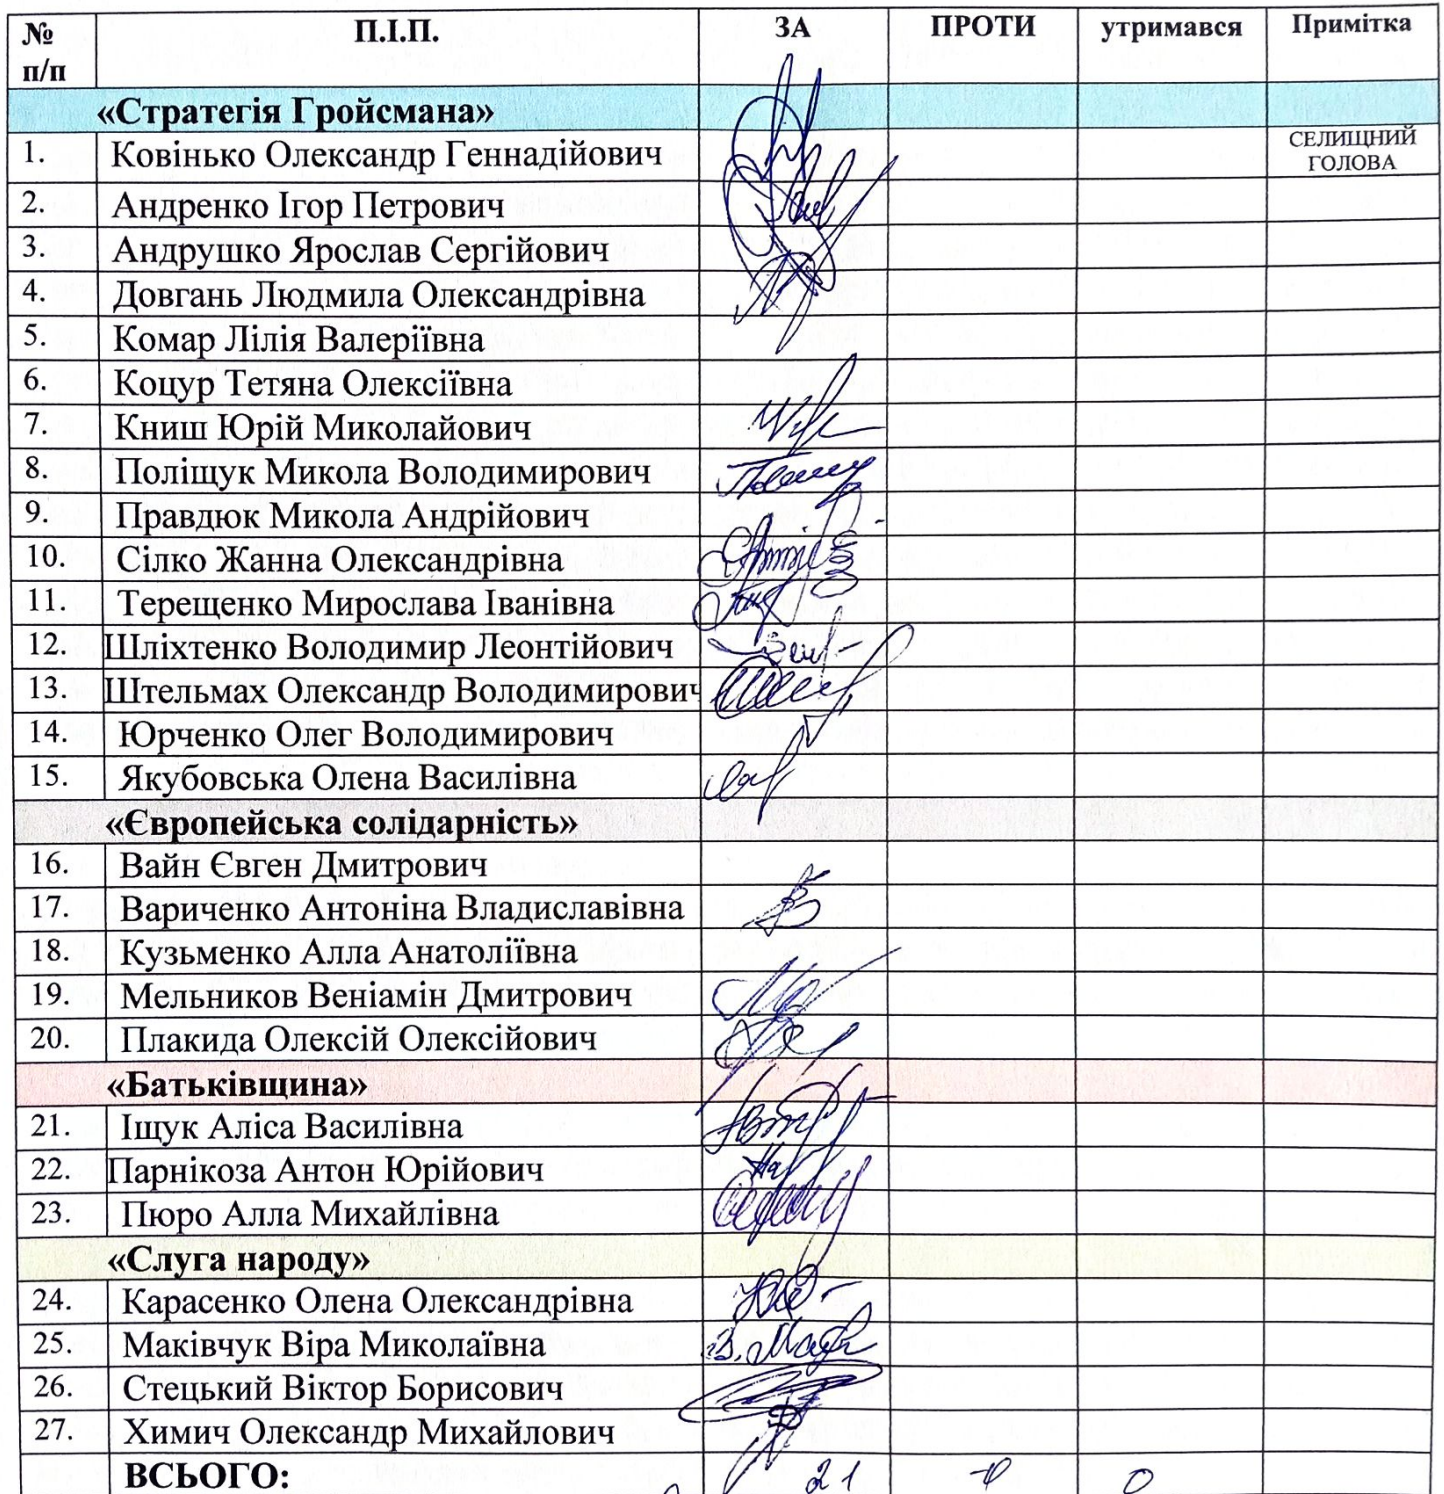 № п/п П.І.П. ЗА ПРОТИ утримався Примітка
«Стратегія Гройсмана»
1. Ковінько Олександр Геннадійович СЕЛИЩНИЙ ГОЛОВА
2. Андренко Ігор Петрович
3. Андрушко Ярослав Сергійович
4. Довгань Людмила Олександрівна
5. Комар Лілія Валеріївна
6. Коцур Тетяна Олексіївна
7. Книш Юрій Миколайович
8. Поліщук Микола Володимирович
9. Правдюк Микола Андрійович
10. Сілко Жанна Олександрівна
11. Терещенко Мирослава Іванівна
12. Шліхтенко Володимир Леонтійович
13. Штельмах Олександр Володимирович
14. Юрченко Олег Володимирович
15. Якубовська Олена Василівна
«Європейська солідарність»
16. Вайн Євген Дмитрович
17. Вариченко Антоніна Владиславівна
18. Кузьменко Алла Анатоліївна
19. Мельников Веніамін Дмитрович
20. Плакида Олексій Олексійович
«Батьківщина»
21. Іщук Аліса Василівна
22. Парнікоза Антон Юрійович
23. Пюро Алла Михайлівна
«Слуга народу»
24. Карасенко Олена Олександрівна
25. Маківчук Віра Миколаївна
26. Стецький Віктор Борисович
27. Химич Олександр Михайлович
ВСЬОГО: 21 0